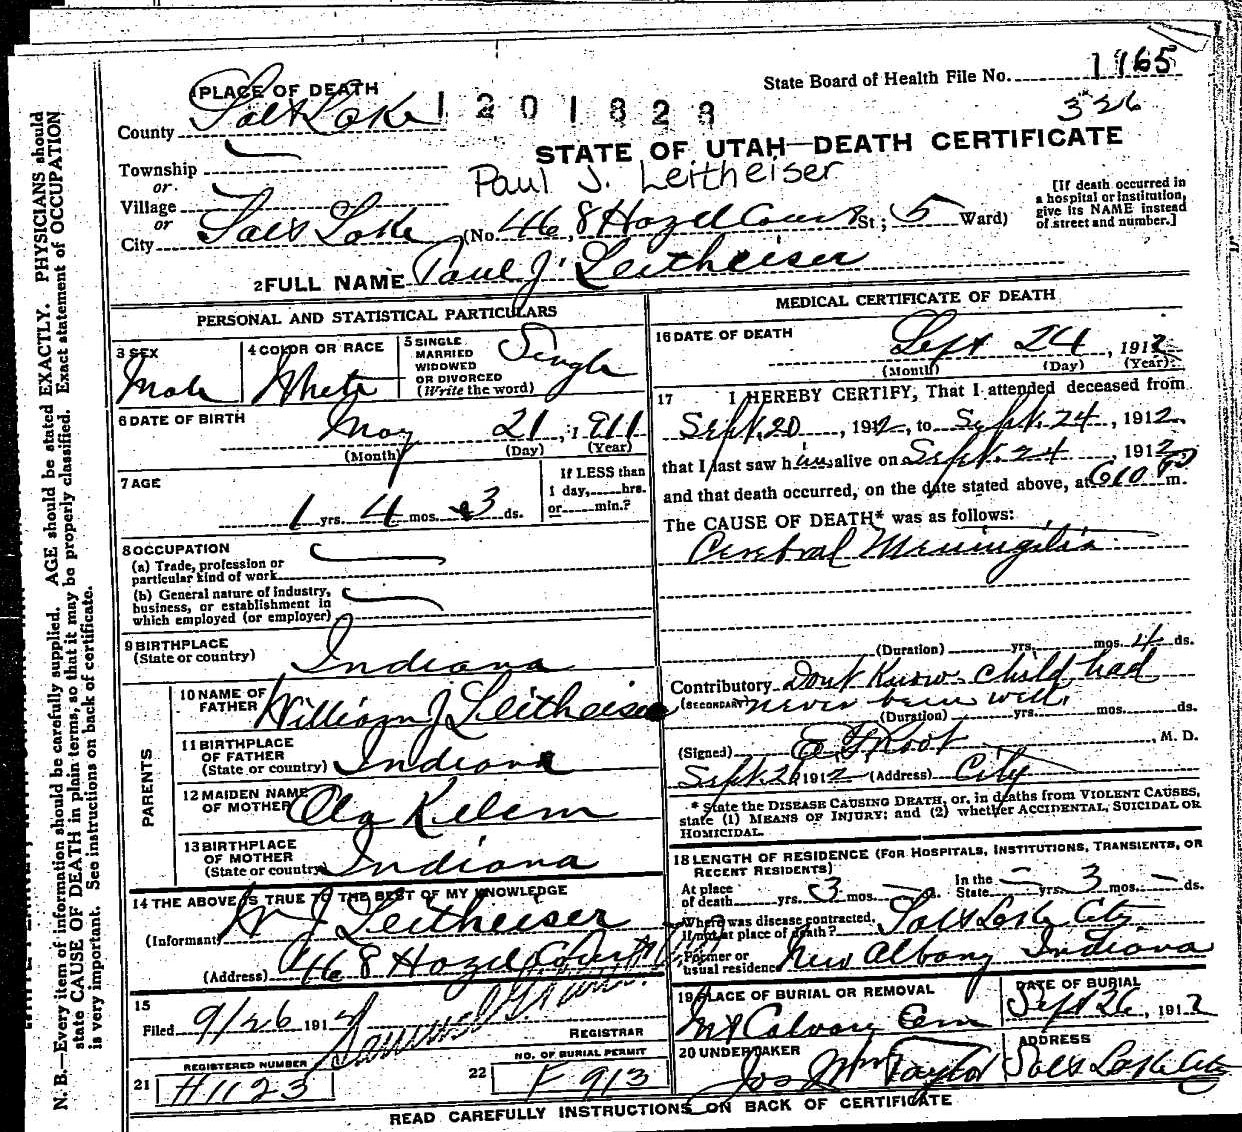 State Board of Health File No. 1165
326
PLACE OF DEATH
1201828
County Salt Lake
STATE OF UTAH—DEATH CERTIFICATE
Township
Paul J. Leitheiser
or
Village
or
City Salt Lake (No. 468 Hazel Court St; 5 Ward)
[If death occurred in
a hospital or institution,
give its NAME instead
of street and number.]
2 FULL NAME Paul J. Leitheiser
PERSONAL AND STATISTICAL PARTICULARS
3 SEX
Male
4 COLOR OR RACE
White
5 SINGLE
MARRIED
WIDOWED
OR DIVORCED
(Write the word)
Single
6 DATE OF BIRTH
May 21, 1911
(Month) (Day) (Year)
7 AGE
1 yrs. 4 mos. 3 ds.
If LESS than
1 day,......hrs.
or......min.?
8 OCCUPATION
(a) Trade, profession or
particular kind of work
(b) General nature of industry,
business, or establishment in
which employed (or employer)
9 BIRTHPLACE
(State or country)
Indiana
PARENTS
10 NAME OF
FATHER
William J Leitheiser
11 BIRTHPLACE
OF FATHER
(State or country)
Indiana
12 MAIDEN NAME
OF MOTHER
Ola Kelem
13 BIRTHPLACE
OF MOTHER
(State or country)
Indiana
14 THE ABOVE IS TRUE TO THE BEST OF MY KNOWLEDGE
(Informant) W J Leitheiser
(Address) 468 Hazel Court
15
Filed 9/26 191
REGISTRAR
REGISTERED NUMBER
21 H1123
NO. OF BURIAL PERMIT
22 F 913
MEDICAL CERTIFICATE OF DEATH
16 DATE OF DEATH
Sept 24, 1912
(Month) (Day) (Year)
17 I HEREBY CERTIFY, That I attended deceased from
Sept. 20, 1912, to Sept. 24, 1912
that I last saw him alive on Sept. 24, 1912
and that death occurred, on the date stated above, at 610 P m.
The CAUSE OF DEATH* was as follows:
Cerebral Meningitis
(Duration) yrs. mos. 4 ds.
Contributory Dont Know. Child had
(SECONDARY) never been well.
(Duration) yrs. mos. ds.
(Signed) E F Root, M. D.
Sept. 26 1912 (Address) City
* State the DISEASE CAUSING DEATH, or, in deaths from VIOLENT CAUSES,
state (1) MEANS OF INJURY; and (2) whether ACCIDENTAL, SUICIDAL OR
HOMICIDAL.
18 LENGTH OF RESIDENCE (FOR HOSPITALS, INSTITUTIONS, TRANSIENTS, OR
RECENT RESIDENTS)
At place
of death yrs. 3 mos. ds.
In the
State yrs. 3 mos. ds.
Where was disease contracted,
if not at place of death? Salt Lake City
Former or
usual residence New Albany Indiana
19 PLACE OF BURIAL OR REMOVAL
Mt Calvary Cem
DATE OF BURIAL
Sept 26, 1912
20 UNDERTAKER
Jos Wm Taylor
ADDRESS
Salt Lake City
READ CAREFULLY INSTRUCTIONS ON BACK OF CERTIFICATE
N. B.—Every item of information should be carefully supplied. AGE should be stated EXACTLY. PHYSICIANS should
state CAUSE OF DEATH in plain terms, so that it may be properly classified. Exact statement of OCCUPATION
is very important. See instructions on back of certificate.